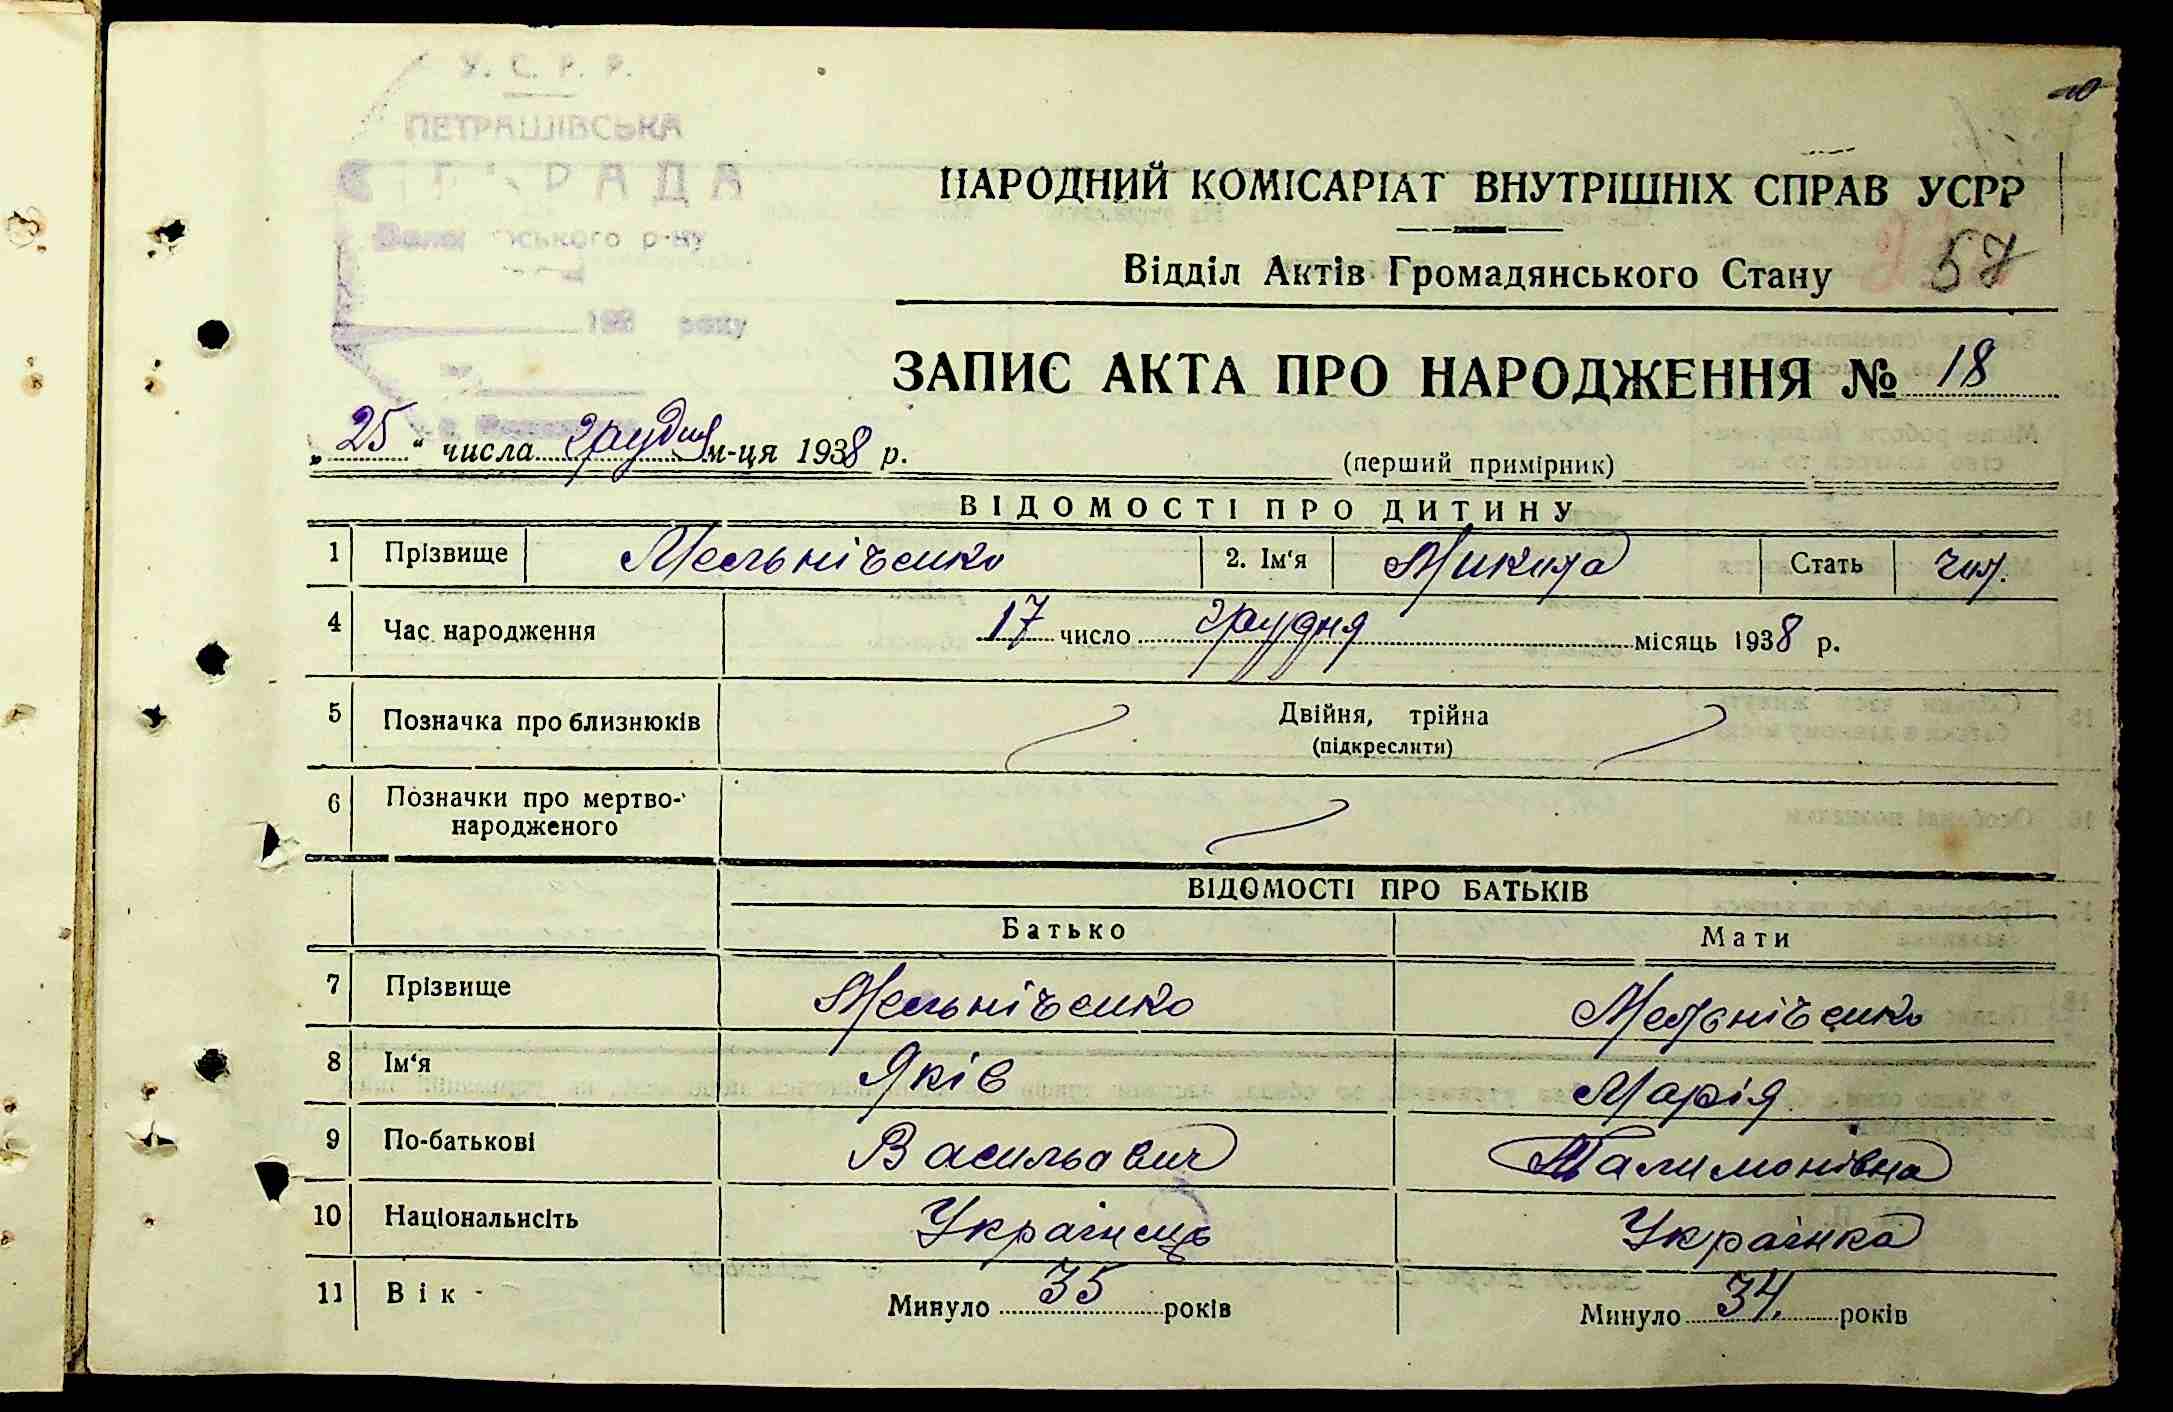 У. С. Р. Р.
ПЕТРАШІВСЬКА
РАДА
ського р-ну
193 року
НАРОДНИЙ КОМІСАРІАТ ВНУТРІШНІХ СПРАВ УСРР
Відділ Актів Громадянського Стану 57
ЗАПИС АКТА ПРО НАРОДЖЕННЯ № 18
„25“ числа грудня м-ця 1938 р.
(перший примірник)
ВІДОМОСТІ ПРО ДИТИНУ
1 Прізвище Мельніченко 2. Ім'я Микита Стать чол.
4 Час народження 17 число грудня місяць 1938 р.
5 Позначка про близнюків Двійня, трійна
(підкреслити)
6 Позначки про мертво-
народженого
ВІДОМОСТІ ПРО БАТЬКІВ
Батько Мати
7 Прізвище Мельніченко Мельніченко
8 Ім'я Яків Марія
9 По-батькові Васильович Палимонівна
10 Національнсіть Українець Українка
11 Вік Минуло 35 років Минуло 34 років